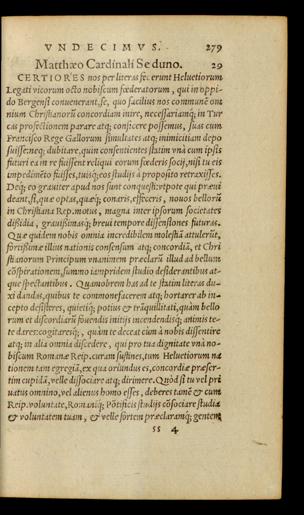 VNDECIMVS. 279
Matthæo Cardinali Seduno. 29
CERTIORES nos per literas fecerunt Heluetiorum
Legati vicorum octo nobiscum fœderatorum, qui in oppi-
do Bergensi conuenerant, se, quo facilius nos communē om
nium Christianorū concordiam inire, necessariamq; in Tur
cas profectionem parare atq; conficere possemus, suas cum
Francisco Rege Gallorum simultates atq; inimicitiam depo
suisse: neq; dubitare, quin consentientes statim vnà cum ipsis
futuri ea in re fuissent reliqui eorum fœderis socij, nisi tu eis
impedimēto fuisses, tuisq; eos studijs à proposito retraxisses.
Deq; eo grauiter apud nos sunt conquesti: vtpote qui præui
deant, si, quæ optas, quæq; conaris, effeceris, nouos bellorū
in Christiana Rep. motus, magna inter ipsorum societates
dissidia, grauissimasq; breui tempore dissensiones futuras.
Quæ quidem nobis omnia incredibilem molestiā attulerūt,
fortissimæ illius nationis consensum atq; concordiā, et Chri
stianorum Principum vnanimem præclarū illud ad bellum
cōspirationem, summo iampridem studio desiderantibus at-
que spectantibus. Quamobrem has ad te statim literas du-
xi dandas, quibus te commonefacerem atq; hortarer ab in-
cepto desisteres, quietiq; potius & trāquillitati, quàm bello
rum et discordiarū fouendis initijs incendendisq; animis te-
te dares: cogitaresq;, quàm te deceat cùm à nobis dissentire
atq; in alia omnia discedere, qui pro tua dignitate vnà no-
biscum Romanæ Reip. curam sustines, tum Heluetiorum na
tionem tam egregiā, ex qua oriundus es, concordiæ præser-
tim cupidā, velle dissociare atq; dirimere. Quòd si tu vel pri
uatus omnino, vel alienus homo esses, deberes tamē & cum
Reip. voluntate, Romaniq; Pōtificis studijs cōsociare studia
& voluntatem tuam, & velle fortem præclaramq; gentem
ss 4